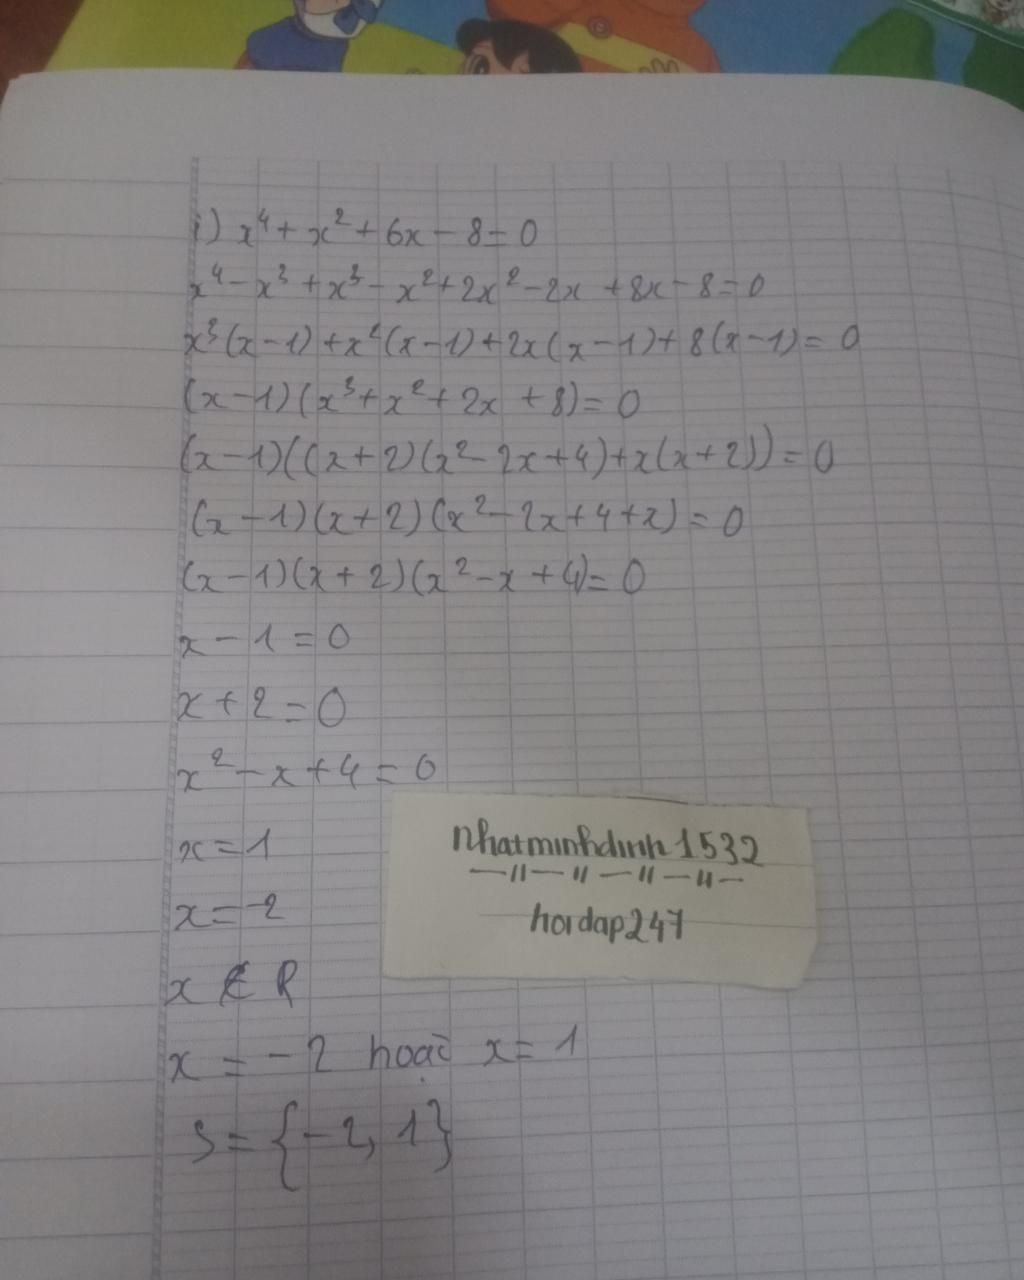 i) x⁴ + x² + 6x - 8 = 0
x⁴ - x³ + x³ - x² + 2x² - 2x + 8x - 8 = 0
x³(x-1) + x²(x-1) + 2x(x-1) + 8(x-1) = 0
(x-1)(x³ + x² + 2x + 8) = 0
(x-1)((x+2)(x² - 2x + 4) + x(x+2)) = 0
(x-1)(x+2)(x² - 2x + 4 + x) = 0
(x-1)(x+2)(x² - x + 4) = 0
x - 1 = 0
x + 2 = 0
x² - x + 4 = 0
x = 1
x = -2
x ∉ R
x = -2 hoặc x = 1
S = {-2, 1}
nhatminhdinh1532
—//— // —//—//—
hoidap247